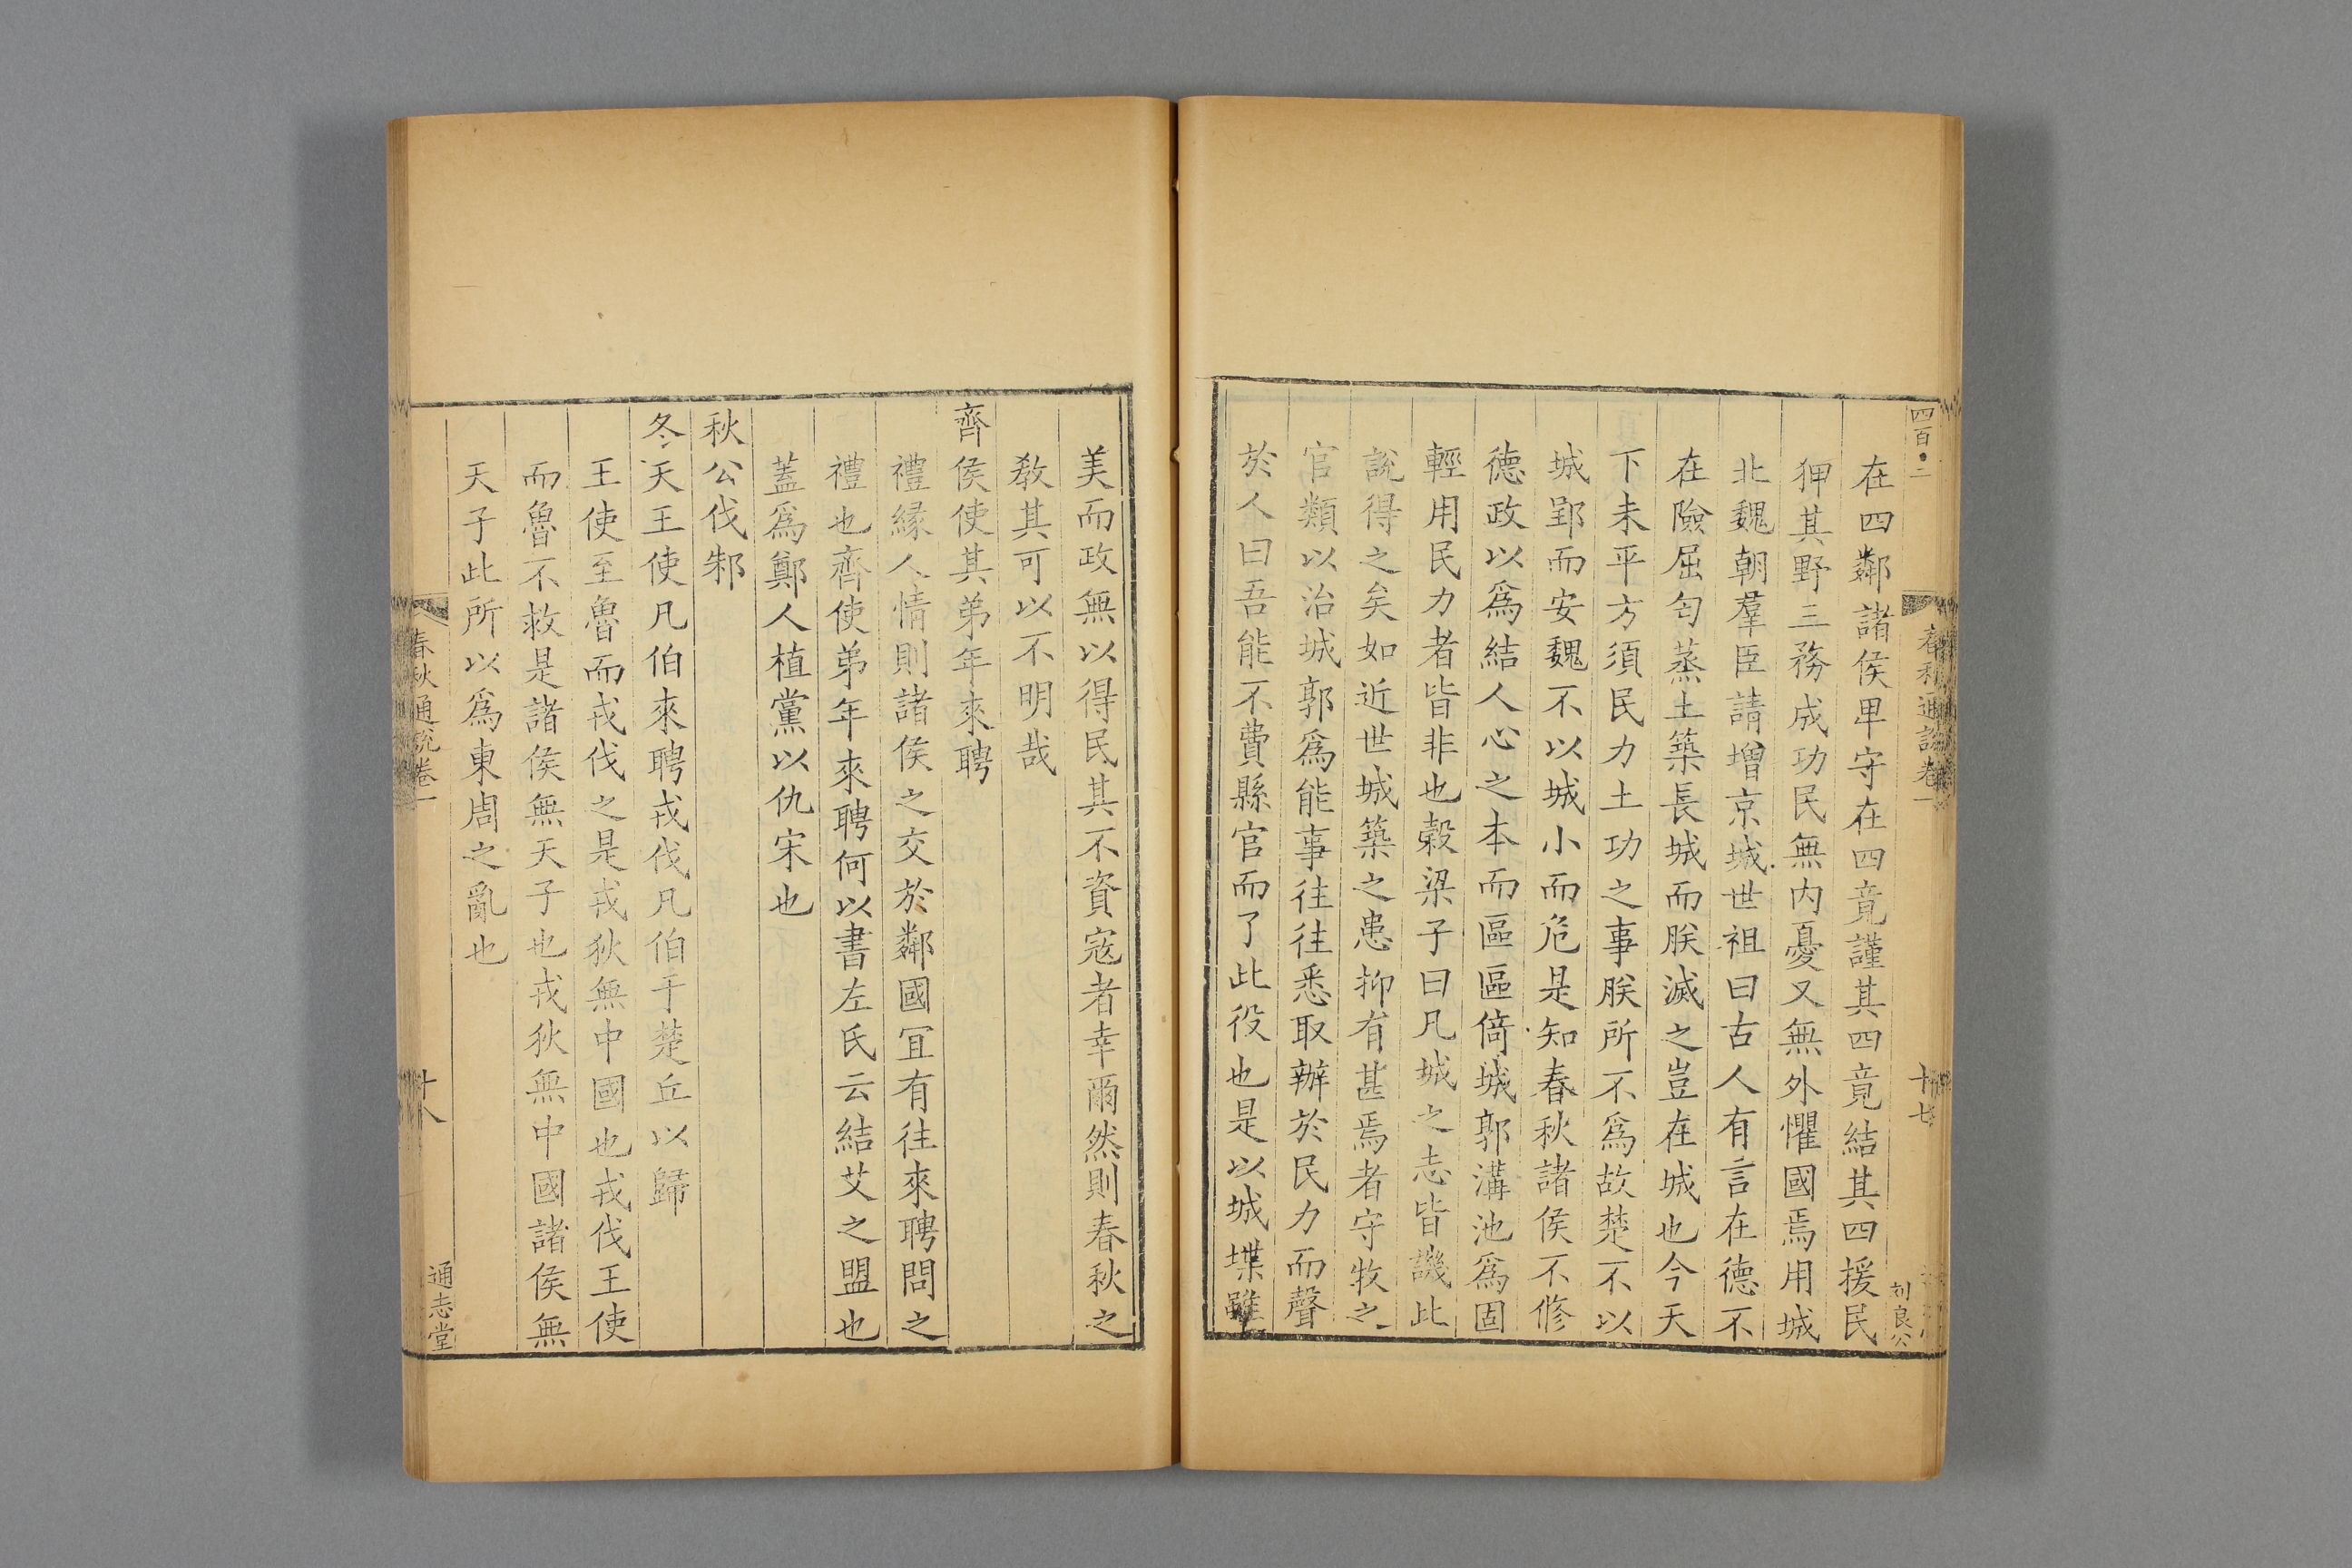 四百二
春秋通說卷一
十七
在四鄰諸侯卑守在四竟謹其四竟結其四援民
狎其野三務成功民無内憂又無外懼國焉用城
北魏朝羣臣請增京城世祖曰古人有言在德不
在險屈匄蒸土築長城而朕滅之豈在城也今天
下未平方須民力土功之事朕所不爲故楚不以
城郢而安魏不以城小而危是知春秋諸侯不修
德政以爲結人心之本而區區倚城郭溝池爲固
輕用民力者皆非也榖梁子曰凡城之志皆譏此
說得之矣如近世城築之患抑有甚焉者守牧之
官類以治城郭爲能事往往悉取辦於民力而聲
於人曰吾能不費縣官而了此役也是以城堞雖
美而政無以得民其不資寇者幸爾然則春秋之
敎其可以不明哉
齊侯使其弟年來聘
禮緣人情則諸侯之交於鄰國冝有往來聘問之
禮也齊使弟年來聘何以書左氏云結艾之盟也
蓋爲鄭人植黨以仇宋也
秋公伐邾
冬天王使凡伯來聘戎伐凡伯于楚丘以歸
王使至魯而戎伐之是戎狄無中國也戎伐王使
而魯不救是諸侯無天子也戎狄無中國諸侯無
天子此所以爲東周之亂也
春秋通說卷一
十八
通志堂